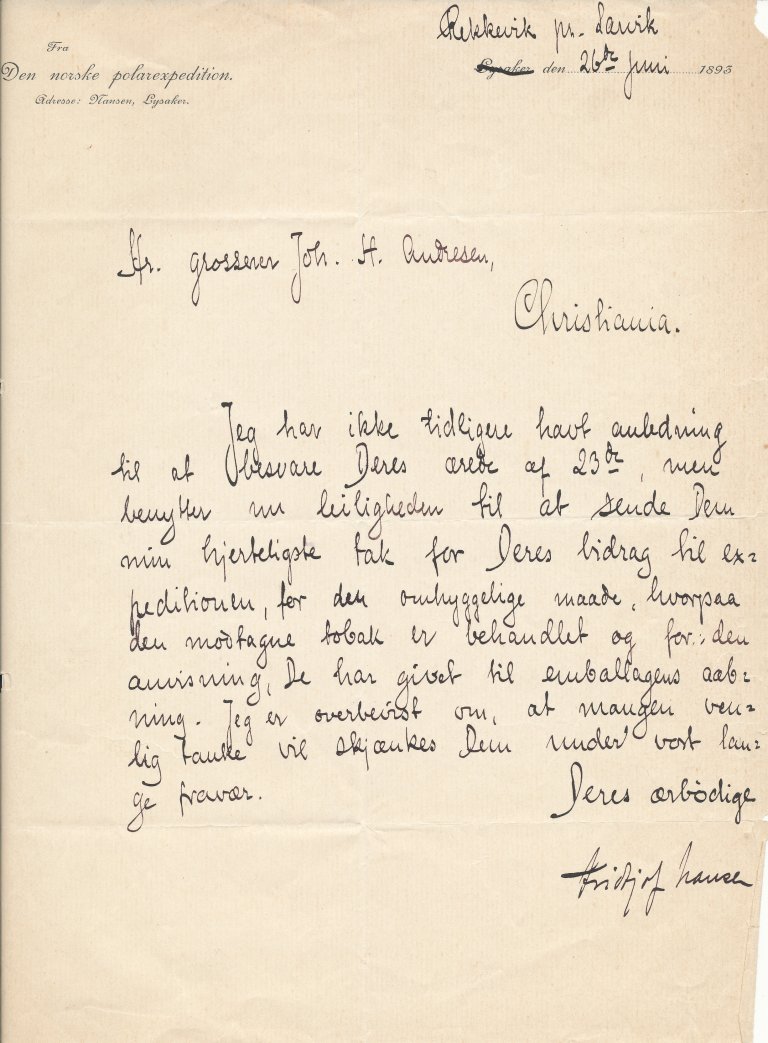 Rekkevik pr. Larvik
Fra
Den norske polarexpedition.
Adresse: Nansen, Lysaker.
Lysaker den 26de juni 1893
Hr. grosserer Joh. H. Andresen,
Christiania.
Jeg har ikke tidligere havt anledning
til at besvare Deres ærede af 23de, men
benytter nu leiligheden til at sende Dem
min hjerteligste tak for Deres bidrag til ex=
peditionen, for den omhyggelige maade, hvorpaa
den modtagne tobak er behandlet og for den
anvisning, De har givet til emballagens aab=
ning. Jeg er overbevist om, at mangen ven=
lig tanke vil skjænkes Dem under vort lan=
ge fravær.
Deres ærbödige
Fridtjof Nansen